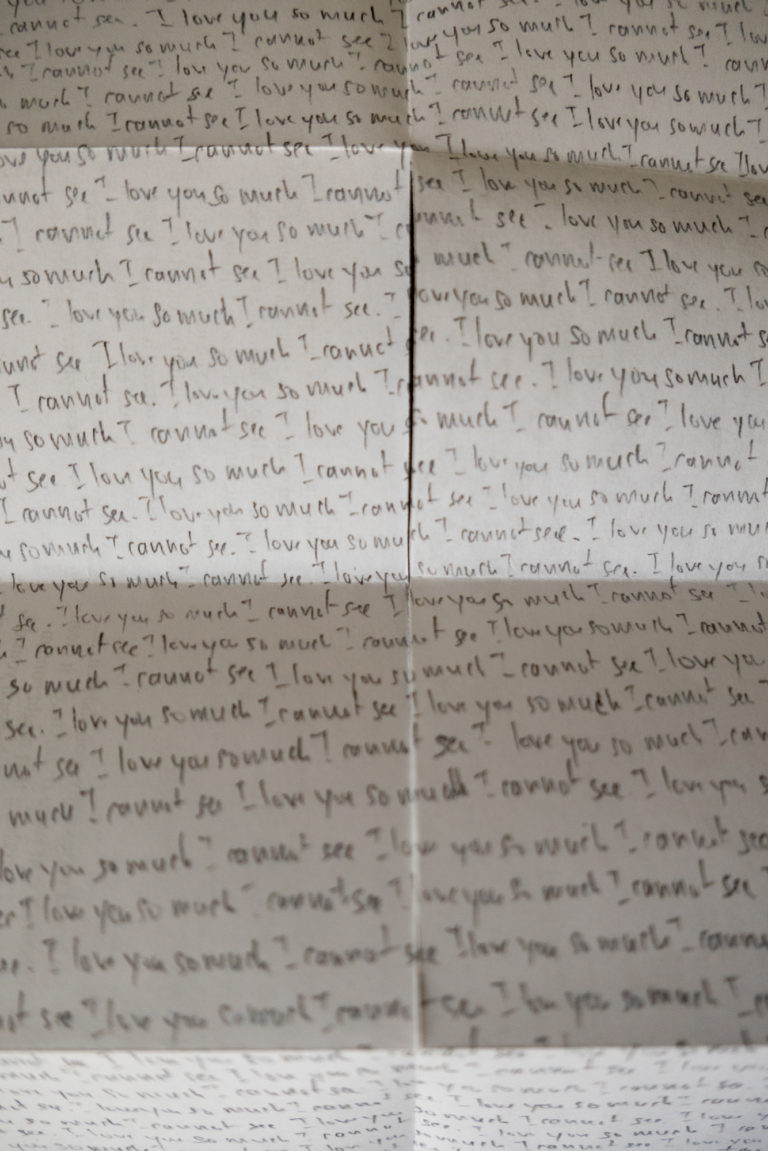 cannot see. I love you so much I cannot see I love you so much
see I love you so much I cannot see I love you so much I cannot see I lov
I cannot see I love you so much I cannot see I love you so much I cann
much I cannot see I love you so much I cannot see I love you so much I
so much I cannot see I love you so much I cannot see I love you so much I
love you so much I cannot see I love you I love you so much I cannot see I love
nnot see I love you so much I cannot see I love you so much I cannot see
I cannot see I love you so much I cannot see I love you so much I
u so much I cannot see I love you so much I cannot see I love you so
see. I love you so much I cannot see. I love you so much I cannot see. I lov
nnot see I love you so much I cannot see. I love you so much I cannot s
I cannot see. I love you so much I cannot see. I love you so much I
u so much I cannot see I love you so much I cannot see I love you
ot see I love you so much I cannot see I love you so much I cannot
I cannot see. I love you so much I cannot see I love you so much I cannot
u so much I cannot see. I love you so much I cannot see. I love you so mu
love you so much I cannot see. I love you so much I cannot see. I love you s
see. I love you so much I cannot see I love you so much I cannot see I
I cannot see I love you so much I cannot see I love you so much I cannot
so much I cannot see I love you so much I cannot see I love you
see. I love you so much I cannot see I love you so much I cannot see
not see I love you so much I cannot see I love you so much I can
much I cannot see I love you so much I cannot see I love you s
love you so much I cannot see I love you so much I cannot see
I love you so much I cannot see I love you so much I cannot see
I love you so much I cannot see I love you so much I cannot
ot see I love you so much I cannot see I love you so much I
I love you so much I cannot see I love you so much
much I cannot see I love you so much I cannot see